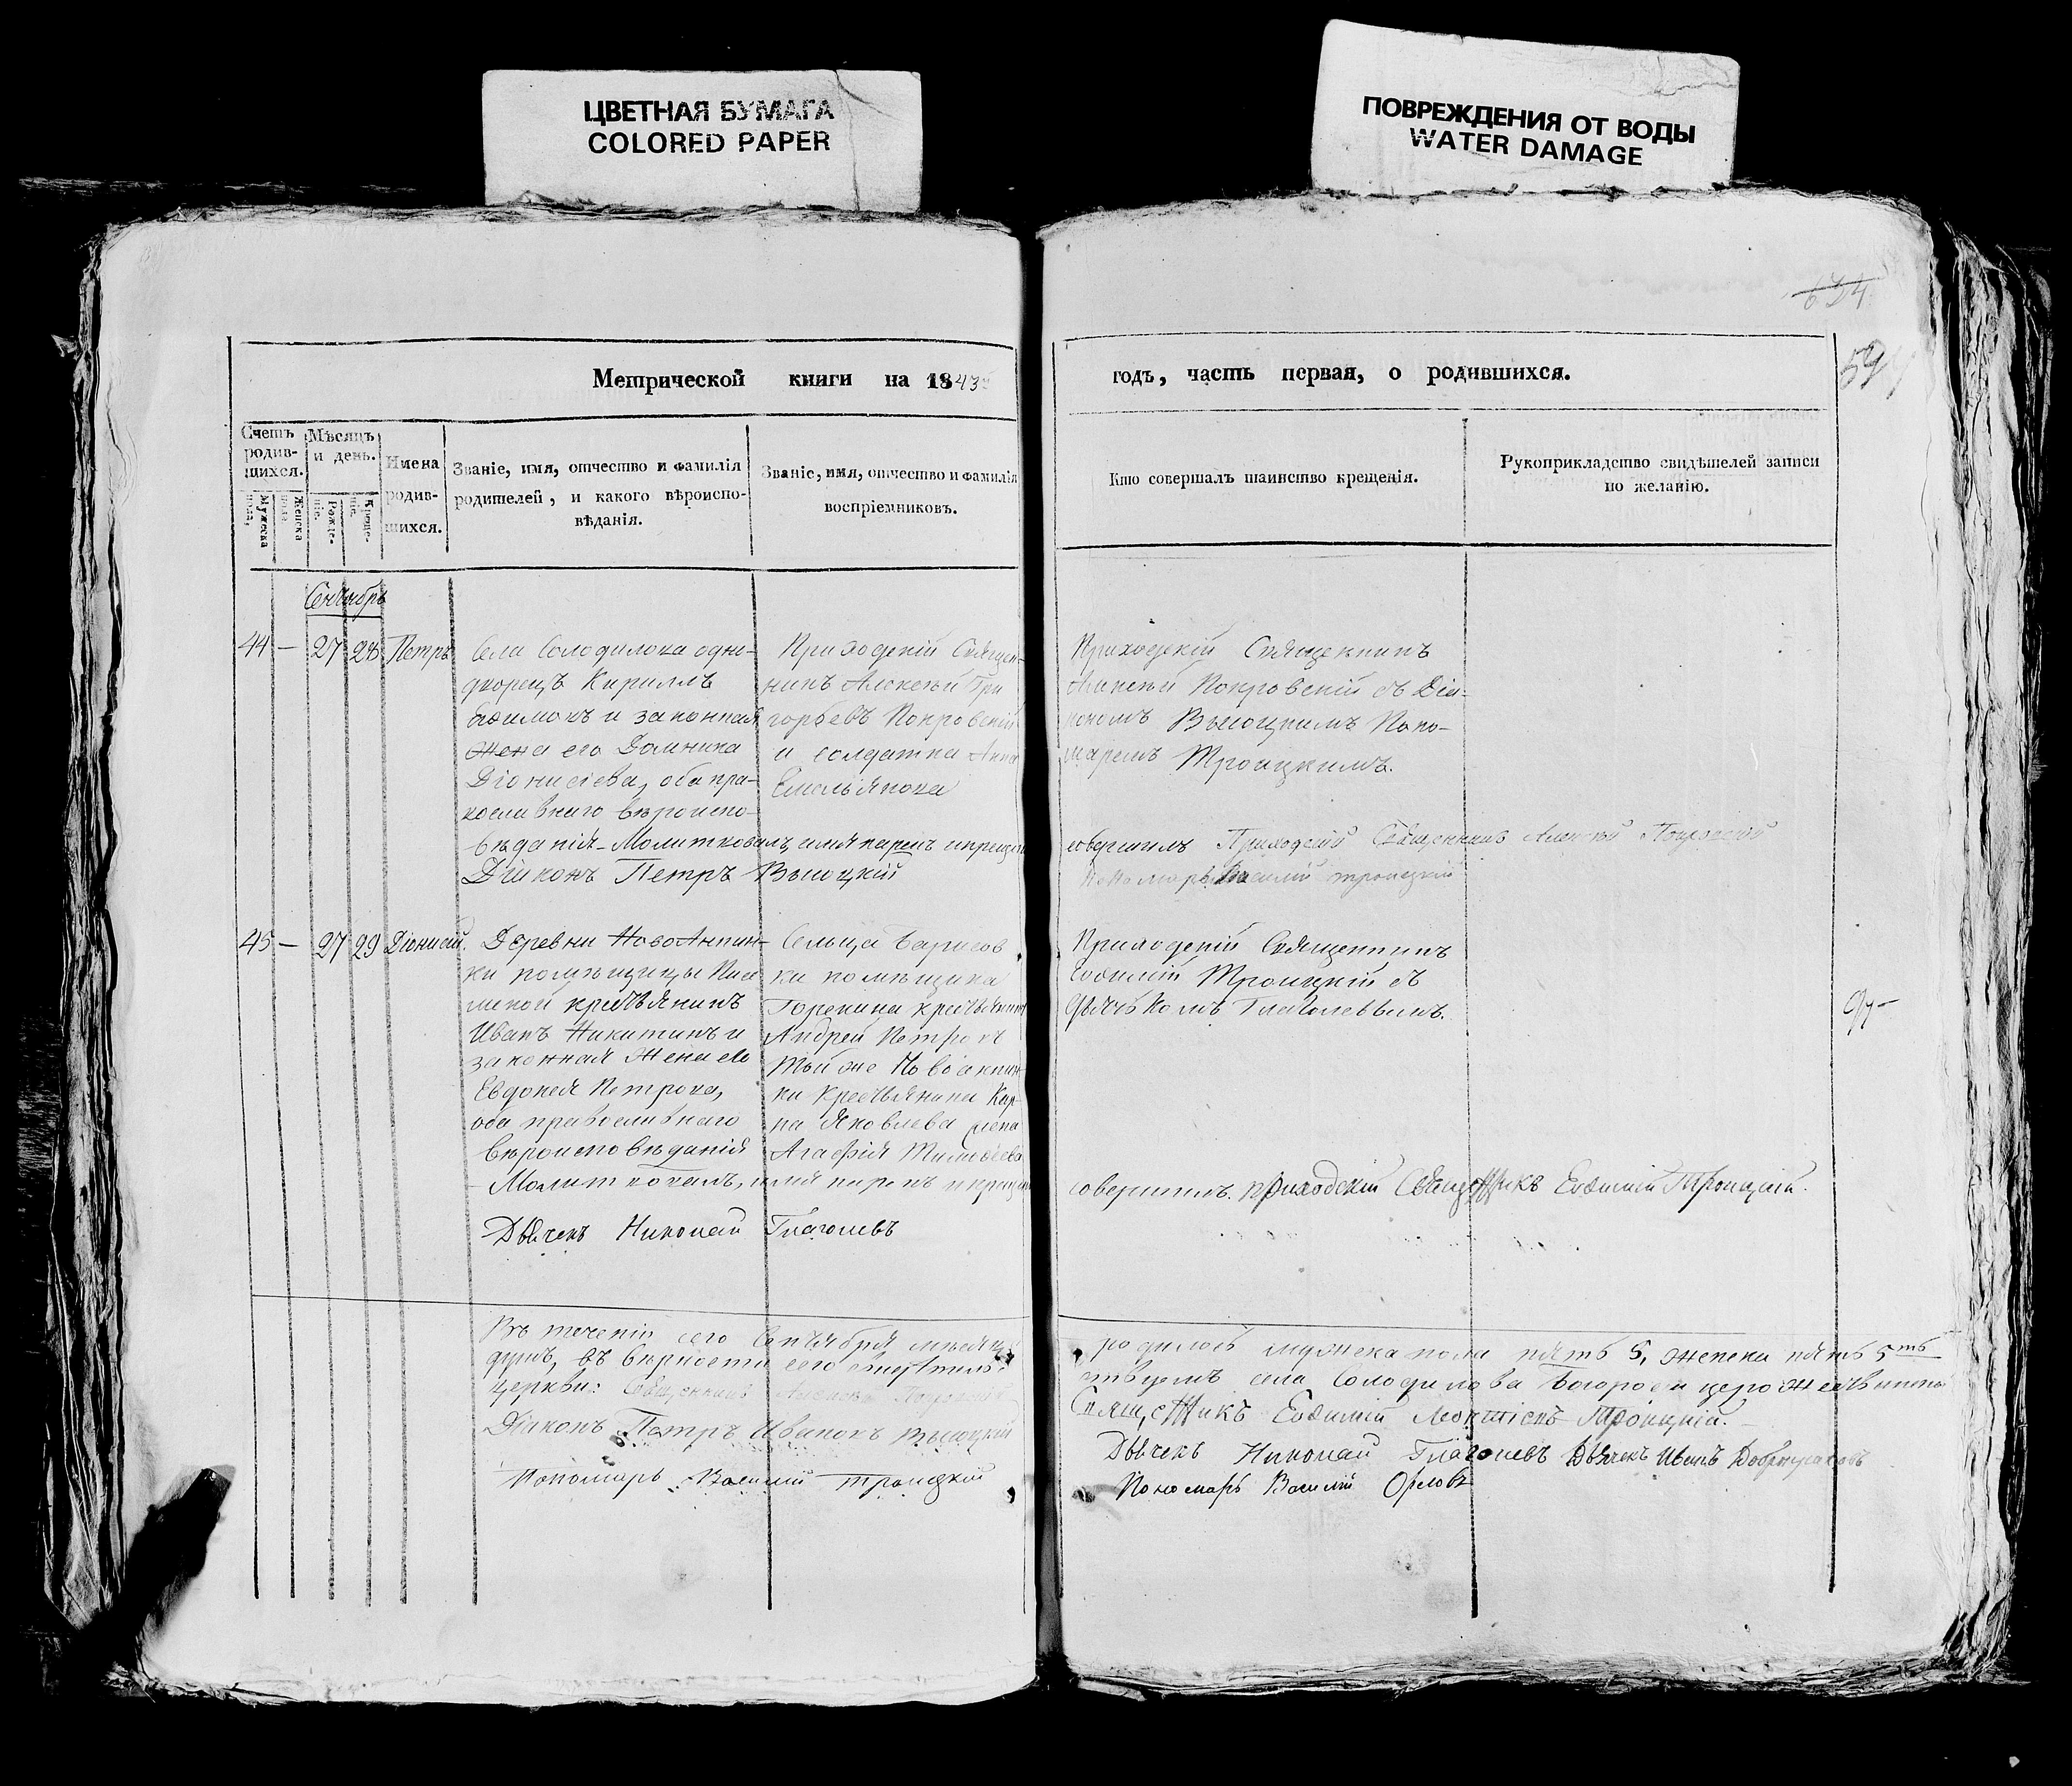 ЦВЕТНАЯ БУМАГА
COLORED PAPER
ПОВРЕЖДЕНИЯ ОТ ВОДЫ
WATER DAMAGE
Метрической книги на 1843
годъ, часть первая, о родившихся.
Счетъ родив-шихся.
Мѣсяцъ и день.
Имена родив-шихся.
Званіе, имя, отчество и фамилія
родителей, и какого вѣроиспо-
вѣданія.
Званіе, имя, отчество и фамилія
воспріемниковъ.
Кто совершалъ таинство крещенія.
Рукоприкладство свидѣтелей записи
по желанію.
Мужеска пола,
Женска пола
Рожде-ніе.
Креще-ніе.
Сентябрь
44 — 27 28 Петръ
Села Солодилова одно-
дворецъ Кириллъ
и законная
жена его Домника
Діонисіева, оба пра-
вославнаго вѣроиспо-
вѣданія
Приходскій Священ-
никъ Алексѣй Гри
горьевъ Покровскій
и солдатка Анна
Емельянова
Приходскій Священникъ
Алексѣй Покровскій съ Діа-
кономъ Высоцкимъ Поно-
маремъ Троицкимъ.
Молитвовалъ, имя нарекъ и крещеніе
совершилъ Приходскій Священникъ Алексѣй Покровскій
Діаконъ Петръ Высоцкій
Пономарь Василій Троицкій
45 — 27 29 Діонисій.
Деревни
ки помѣщицы
крестьянинъ
Иванъ Никитинъ и
законная жена его
Евдокея Петрова,
оба православнаго
вѣроисповѣданія
Сельца Барисов
ки помѣщика
крестьянинъ
Андрей Петровъ
той же
ки крестьянина Кар-
па Яковлева жена
Агафія Тимофеева
Приходскій Священникъ
Евѳимій Троицкій съ
дьячькомъ Глаголевымъ.
Молитвовалъ, имя нарекъ и крещеніе
совершилъ. приходскій Священникъ Евѳимій Троицкій.
Дьячекъ Николай Глаголевъ
Въ теченіи сего Сентября мѣсяца
родилось мужеска пола пять 5, женска пять 5ть
душъ, въ вѣрности сего
села Солодилова Богородицерождественской
церкви: Священникъ Алексѣй Покровскій
Священникъ Евѳимій Леонтіевъ Троицкій.
Діаконъ Петръ Ивановъ Высоцкій
Дьячекъ Николай Глаголевъ Дьячекъ Иванъ
Пономарь Василій Троицкій
Пономарь Василій Орловъ